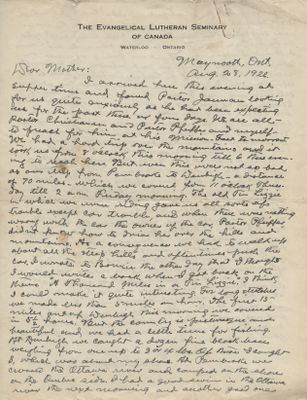 THE EVANGELICAL LUTHERAN SEMINARY
OF CANADA
WATERLOO - ONTARIO
Maynooth, Ont.
Aug. 28, 1922
Dear Mother:
I arrived here this evening at
supper time and found Pastor looking
for us quite anxiously as he had been expecting
me for the past three or four days. We are all,
Pastor and Pastor and myself
to preach for him at his Mission
We had a hard trip over the mountains and it
took us from 7 o'clock this morning till 6 this even-
ing to reach here. But even this was not so bad
as our trip from Pembroke to Denbigh - a distance
of 70 miles. which we covered from 11 o'clock Thurs-
day till 2 a.m. Friday morning. The old Tin Lizzie
in which we were riding gave us all sorts of
trouble except car trouble, and when there was nothing
wrong with the car the owner of the car Pastor
didn't know how to drive thru out the hills and
mountains. As a consequence we had to walk up
about all the steep hills and oftentimes push the
car. I wrote to the other day that I thought
I would write a book when I got back on the
theme "A Thousand Miles in a Tin Lizzie". I think
I could make it quite interesting. For long stretches
we made less than 5 miles an hour. The first 15
miles out of Denbigh this morning we covered
in 5½ hours. But the country is picturesque and
beautiful and we had a little time for fishing.
At Denbigh we caught a dozen fine black bass
weighing from one up to 3 or 4 lbs.
I, which was about my place. At Pembroke we
crossed the Ottawa river and camped on the shore
on the Quebec side. I had a good swim in the Ottawa
river the next morning and another good one